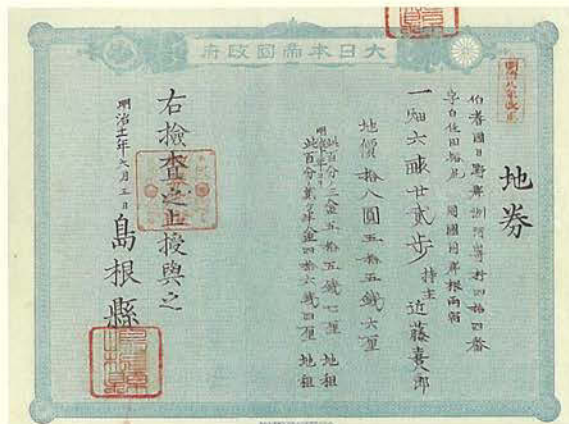 大日本帝國政府
明治八年改正
地券
伯耆國日野郡 村四拾四番
同國同郡根雨宿
一畑六畝廿貳歩 持主 近藤喜八郎
地價拾八圓五拾五錢六厘
此百分ノ三金五拾五錢七厘 地租
明治十年ヨリ
此百分ノ貳ケ半金四拾六錢四厘 地租
右檢査之上授與之
明治十一年 月 日 島根縣